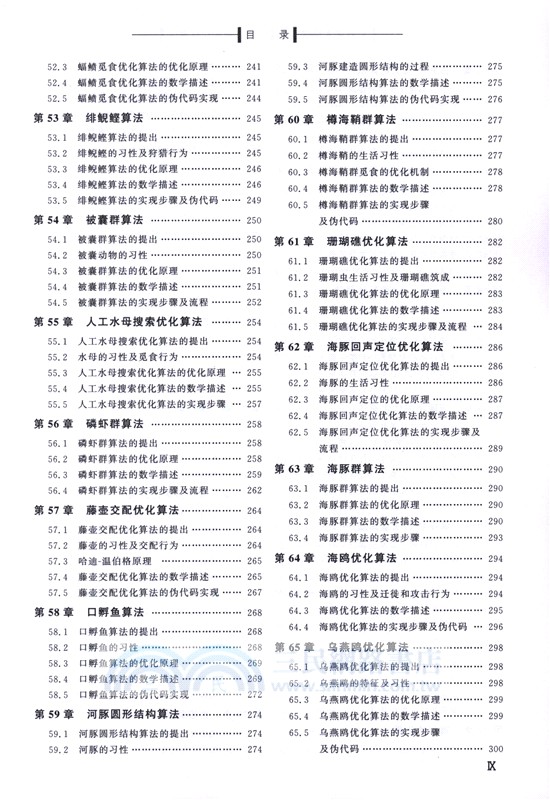 目 录
52.3 蝠鲼觅食优化算法的优化原理 ……… 241
52.4 蝠鲼觅食优化算法的数学描述 ……… 241
52.5 蝠鲼觅食优化算法的伪代码实现 …… 244
第 53 章 绯鲵鲣算法 …………………… 245
53.1 绯鲵鲣算法的提出 ………………… 245
53.2 绯鲵鲣的习性及狩猎行为 ………… 245
53.3 绯鲵鲣算法的优化原理 …………… 246
53.4 绯鲵鲣算法的数学描述 …………… 246
53.5 绯鲵鲣算法的实现步骤及伪代码 …… 249
第 54 章 被囊群算法 …………………… 250
54.1 被囊群算法的提出 ………………… 250
54.2 被囊动物的习性 …………………… 250
54.3 被囊群算法的优化原理 …………… 251
54.4 被囊群算法的数学描述 …………… 251
54.5 被囊群算法的实现步骤及流程 ……… 252
第 55 章 人工水母搜索优化算法 ………… 254
55.1 人工水母搜索优化算法的提出 ……… 254
55.2 水母的习性及觅食行为 …………… 254
55.3 人工水母搜索优化算法的优化原理 … 255
55.4 人工水母搜索优化算法的数学描述 … 255
55.5 人工水母搜索优化算法的实现步骤 … 257
第 56 章 磷虾群算法 …………………… 258
56.1 磷虾群算法的提出 ………………… 258
56.2 磷虾群算法的优化原理 …………… 258
56.3 磷虾群算法的数学描述 …………… 259
56.4 磷虾群算法的实现步骤及流程 ……… 262
第 57 章 藤壶交配优化算法 …………… 264
57.1 藤壶交配优化算法的提出 ………… 264
57.2 藤壶的习性及交配行为 …………… 264
57.3 哈迪-温伯格原理 ………………… 265
57.4 藤壶交配优化算法的数学描述 ……… 265
57.5 藤壶交配优化算法的伪代码实现 …… 267
第 58 章 口孵鱼算法 …………………… 268
58.1 口孵鱼算法的提出 ………………… 268
58.2 口孵鱼的习性 ……………………… 268
58.3 口孵鱼算法的优化原理 …………… 269
58.4 口孵鱼算法的数学描述 …………… 269
58.5 口孵鱼算法的伪代码实现 ………… 272
第 59 章 河豚圆形结构算法 …………… 274
59.1 河豚圆形结构算法的提出 ………… 274
59.2 河豚的习性 ………………………… 274
59.3 河豚建造圆形结构的过程 ………… 275
59.4 河豚圆形结构算法的数学描述 ……… 275
59.5 河豚圆形结构算法的伪代码实现 …… 276
第 60 章 樽海鞘群算法 ………………… 277
60.1 樽海鞘群算法的提出 ……………… 277
60.2 樽海鞘的生活习性 ………………… 277
60.3 樽海鞘群觅食的优化机制 ………… 278
60.4 樽海鞘群算法的数学描述 ………… 278
60.5 樽海鞘群算法的实现步骤
及伪代码 …………………………… 280
第 61 章 珊瑚礁优化算法 ……………… 282
61.1 珊瑚礁优化算法的提出 …………… 282
61.2 珊瑚虫生活习性及珊瑚礁筑成 ……… 282
61.3 珊瑚礁优化算法的优化原理 ……… 283
61.4 珊瑚礁优化算法的数学描述 ……… 283
61.5 珊瑚礁优化算法的实现步骤及流程 … 284
第 62 章 海豚回声定位优化算法 ……… 286
62.1 海豚回声定位优化算法的提出 ……… 286
62.2 海豚的生活习性 …………………… 286
62.3 海豚回声定位的优化原理 ………… 287
62.4 海豚回声定位优化算法的数学描述 … 287
62.5 海豚回声定位优化算法的实现步骤及
流程 ………………………………… 289
第 63 章 海豚群算法 …………………… 290
63.1 海豚群算法的提出 ………………… 290
63.2 海豚群算法的优化原理 …………… 290
63.3 海豚群算法的数学描述 …………… 290
63.4 海豚群算法的实现步骤 …………… 293
第 64 章 海鸥优化算法 ………………… 294
64.1 海鸥优化算法的提出 ……………… 294
64.2 海鸥的习性及迁徙和攻击行为 ……… 294
64.3 海鸥优化算法的数学描述 ………… 295
64.4 海鸥优化算法的实现步骤及伪代码 … 296
第 65 章 乌燕鸥优化算法 ……………… 298
65.1 乌燕鸥优化算法的提出 …………… 298
65.2 乌燕鸥的特征及习性 ……………… 298
65.3 乌燕鸥优化算法的优化原理 ……… 299
65.4 乌燕鸥优化算法的数学描述 ……… 299
65.5 乌燕鸥优化算法的实现步骤
及伪代码 …………………………… 300
Ⅸ